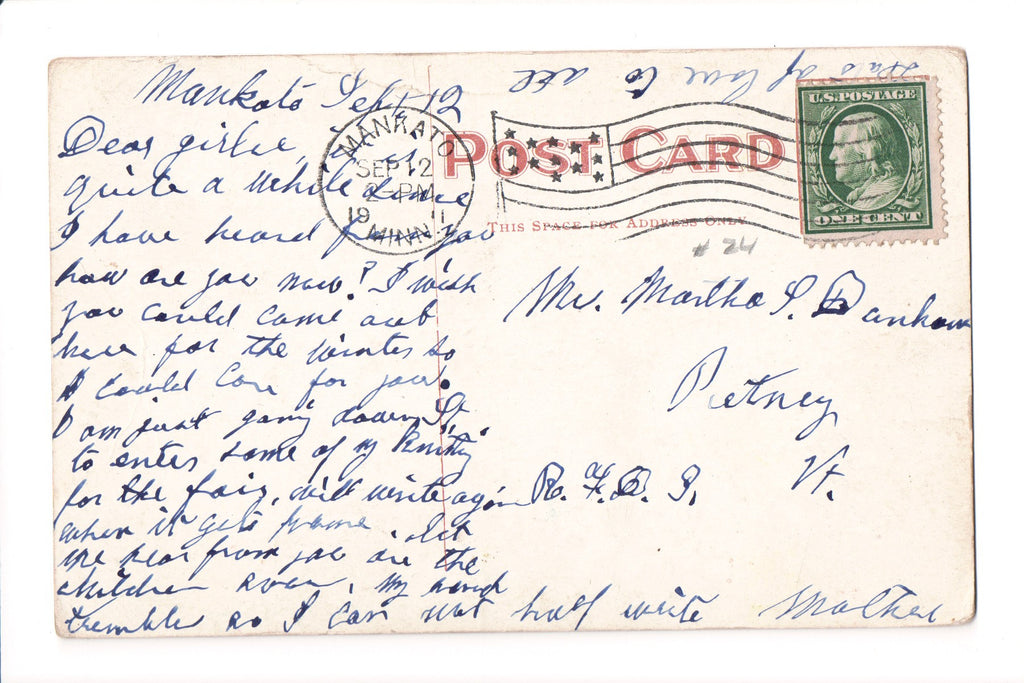 Mankato Sept 12
Dear girlie,
quite a while since
I have heard from you
how are you now? I wish
you could come out
here for the winter so
I could care for you.
I am just going down St.
to enter some of my knitting
for the fair, will write again
when it gets home. let
me hear from you or the
children soon, my hand
tremble so I can not half write Mother
of love to all
MANKATO
SEP 12
2-PM
1911
MINN.
POST CARD
THIS SPACE FOR ADDRESS ONLY
U.S. POSTAGE
ONE CENT
# 24
Mrs. Martha S.
Putney
Vt.
R. F. D. 3.